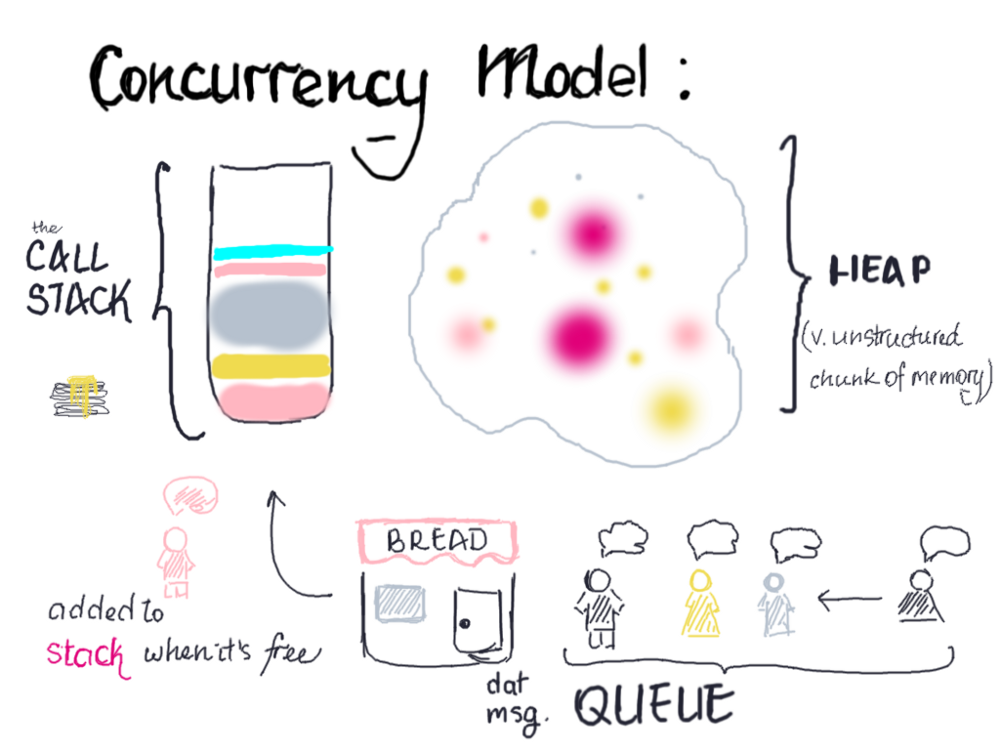 Concurrency Model:
the
CALL
STACK
HEAP
(v. unstructured
chunk of memory)
added to
stack when it's free
BREAD
dat
msg.
QUEUE